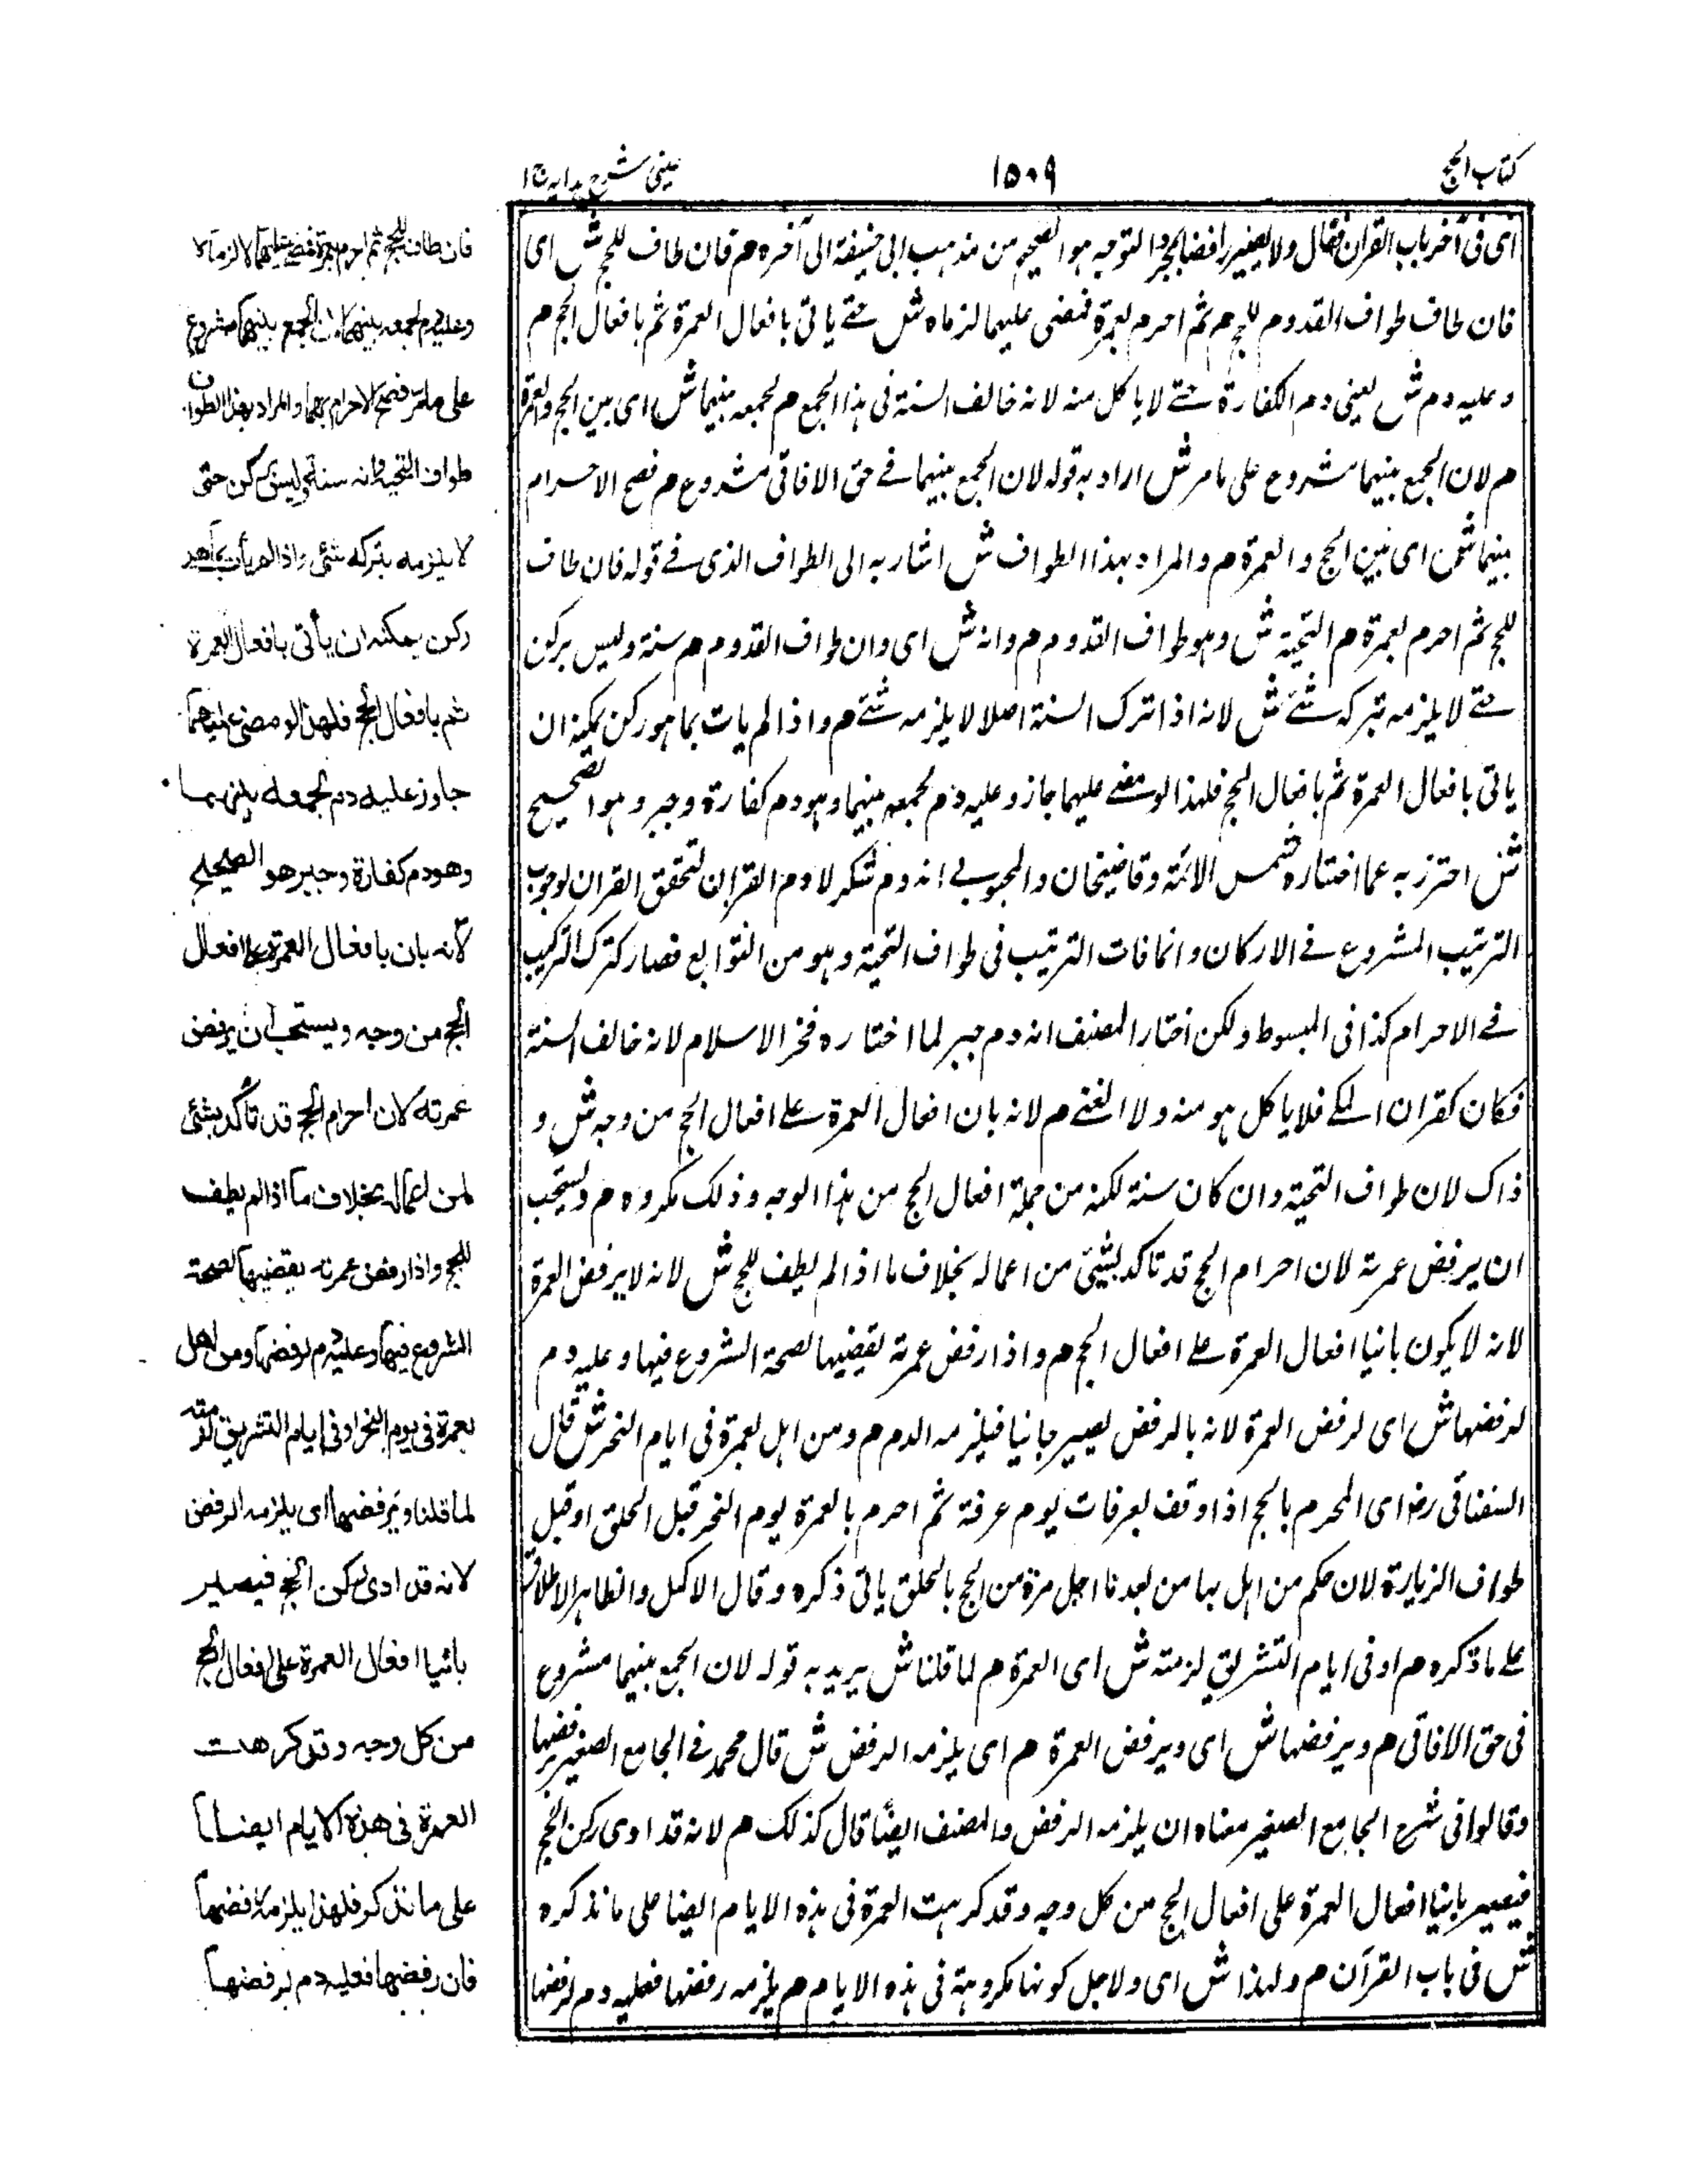 كتاب الحج
١٥٠٩
عينى شرح هدايه ج ١
اى فى آخر باب القران فقال ولا يصير رافضا بمجرد التوجه هو الصحيح من مذهب ابى حنيفة الى آخره م فان طاف للحج ش اى
فان طاف طواف القدوم للحج م ثم احرم بعمرة فمضى عليهما لزماه ش حتے ياتى بافعال العمرة ثم بافعال الحج م
وعليه دم ش يعنى دم الكفارة حتے لا ياكل منه لانه خالف السنة فى هذا الجمع م لجمعه بينهما ش اى بين الحج والعمرة
م لان الجمع بينهما مشروع على ما مر ش اراد به قوله لان الجمع بينهما فے حق الافاقى مشروع م فصح الاحرام
بينهما ش اى بين الحج والعمرة م والمراد بهذا الطواف ش اشار به الى الطواف الذى فے قوله فان طاف
للحج ثم احرم بعمرة م التحية ش وهو طواف القدوم م وانه ش اى وان طواف القدوم م سنة وليس بركن
حتے لا يلزمه بتركه شئے ش لانه اذا ترك السنة اصلا لا يلزمه شئے م واذا لم يات بما هو ركن يمكنه ان
ياتى بافعال العمرة ثم بافعال الحج فلهذا لو مضے عليهما جاز وعليه دم لجمعه بينهما وهو دم كفارة وجبر وهو الصحيح
ش احترز به عما اختاره شمس الائمة وقاضيخان والمحبوبے انه دم شكر لا دم القران لتحقق القران لوجوب
الترتيب المشروع فے الاركان وانما فات الترتيب فى طواف التحية وهو من التوابع فصار كترك الترتيب
فے الاحرام كذا فى المبسوط ولكن اختار المصنف انه دم جبر لما اختاره فخر الاسلام لانه خالف السنة
فكان كقران المكے فلا ياكل هو منه ولا الغنے م لانه بان افعال العمرة علے افعال الحج من وجه ش و
ذاك لان طواف التحية وان كان سنة لكنه من جملة افعال الحج من هذا الوجه وذلك مكروه م ويستحب
ان يرفض عمرته لان احرام الحج قد تاكد بشيئ من اعماله بخلاف ما اذا لم يطف للحج ش لانه لا يرفض العمرة
لانه لا يكون بانيا افعال العمرة علے افعال الحج م واذا رفض عمرته يقضيها لصحة الشروع فيها وعليه دم
لرفضها ش اى لرفض العمرة لانه بالرفض يصير جانيا فيلزمه الدم م ومن اهل بعمرة فى ايام النحر ش قال
السغناقى رض اى المحرم بالحج اذا وقف بعرفات يوم عرفة ثم احرم بالعمرة يوم النحر قبل الحلق او قبل
طواف الزيارة لان حكم من اهل بها من بعد ما احل مرة من الحج بالحلق ياتى ذكره وقال الاكمل والظاهر الاطلاق
علے ما ذكره م او فى ايام التشريق لزمته ش اى العمرة م لما قلنا ش يريد به قوله لان الجمع بينهما مشروع
فى حق الافاقى م ويرفضها ش اى ويرفض العمرة م اى يلزمه الرفض ش قال محمد فے الجامع الصغير يرفضها
وقالوا فى شرح الجامع الصغير معناه ان يلزمه الرفض والمصنف ايضا قال كذلك م لانه قد ادى ركن الحج
فيصير بانيا افعال العمرة على افعال الحج من كل وجه وقد كرهت العمرة فى هذه الايام ايضا على ما نذكره
ش فى باب القرآن م ولهذا ش اى ولاجل كونها مكروهة فى هذه الايام م يلزمه رفضها فعليه دم لرفضها
فان طاف للحج ثم احرم بعمرة فمضى عليهما لزماه
وعليه دم لجمعه بينهما لان الجمع بينهما مشروع
على ما مر فصح الاحرام بهما والمراد بهذا الطواف
طواف التحية وانه سنة وليس بركن حتى
لا يلزمه بتركه شئى واذا لم يأت بما هو
ركن يمكنه ان يأتى بافعال العمرة
ثم بافعال الحج فلهذا لو مضى عليهما
جاز وعليه دم لجمعه بينهما
وهو دم كفارة وجبر هو الصحيح
لانه بان بافعال العمرة على افعال
الحج من وجه ويستحب ان يرفض
عمرته لان احرام الحج قد تأكد بشئى
من اعماله بخلاف ما اذا لم يطف
للحج واذا رفض عمرته يقضيها لصحة
الشروع فيها وعليه دم لرفضها ومن اهل
بعمرة فى يوم النحر او فى ايام التشريق لزمته
لما قلنا ويرفضها اى يلزمه الرفض
لانه قد ادى ركن الحج فيصير
بانيا افعال العمرة على افعال الحج
من كل وجه وقد كرهت
العمرة فى هذه الايام ايضا
على ما نذكر فلهذا يلزمه رفضها
فان رفضها فعليه دم لرفضها